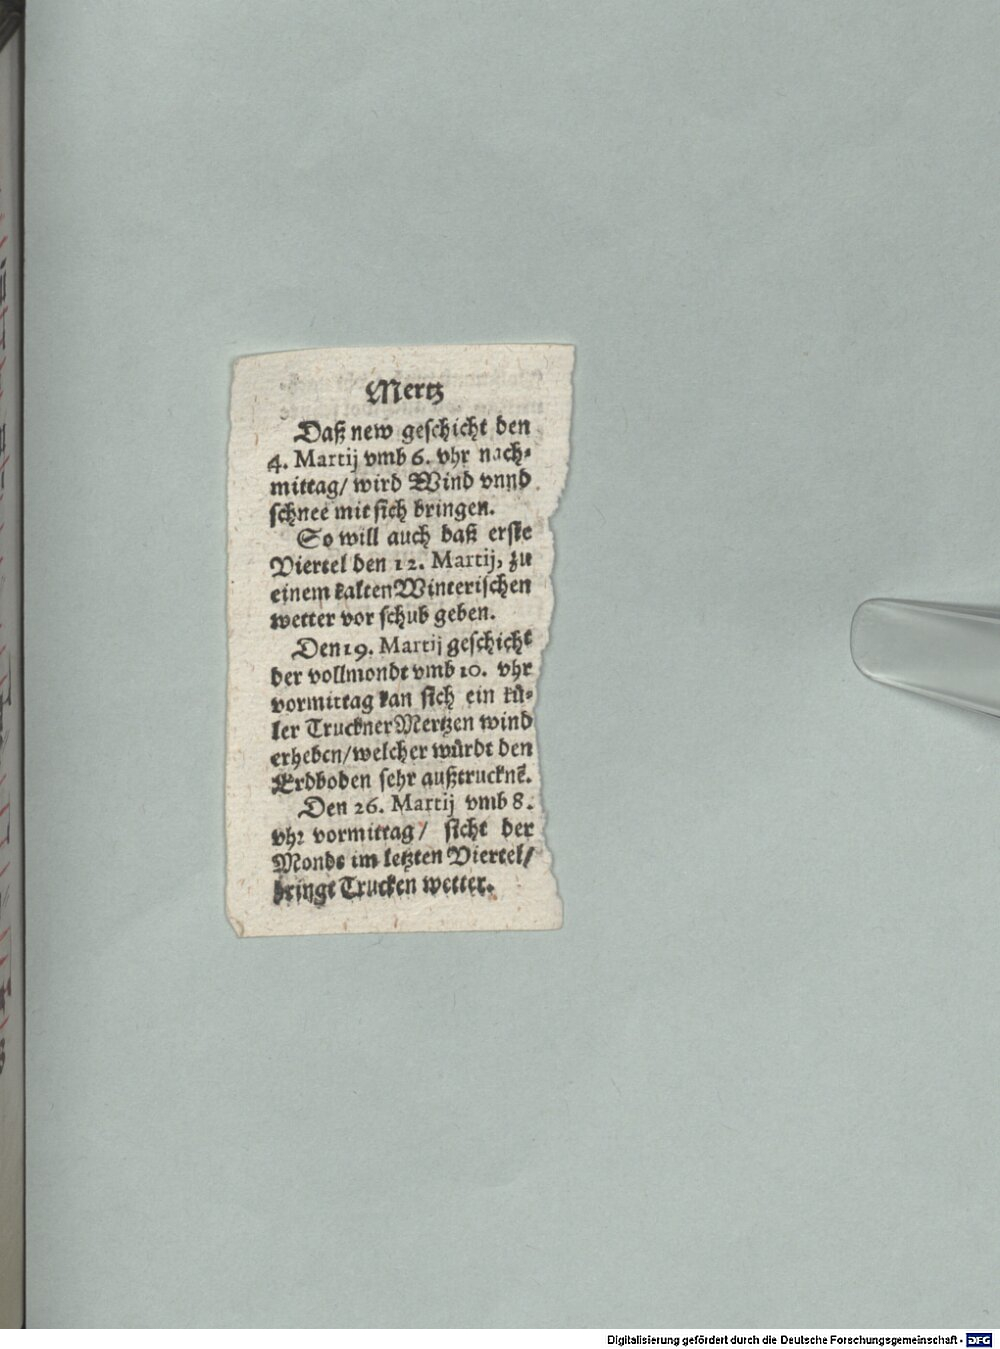 Mertz
Daß new geschicht den
4. Martij vmb 6. vhr nach-
mittag/ wird Wind vnnd
schnee mit sich bringen.
So will auch daß erste
Viertel den 12. Martij, zu
einem kalten Winterischen
wetter vor schub geben.
Den 19. Martij geschicht
der vollmondt vmb 10. vhr
vormittag kan sich ein kuͤ-
ler Truckner Mertzen wind
erheben/welcher wuͤrdt den
Erdboden sehr außtrucknẽ.
Den 26. Martij vmb 8.
vhr vormittag/ sicht der
Monde im letzten Viertel/
bringt Trucken wetter.
Digitalisierung gefördert durch die Deutsche Forschungsgemeinschaft - DFG